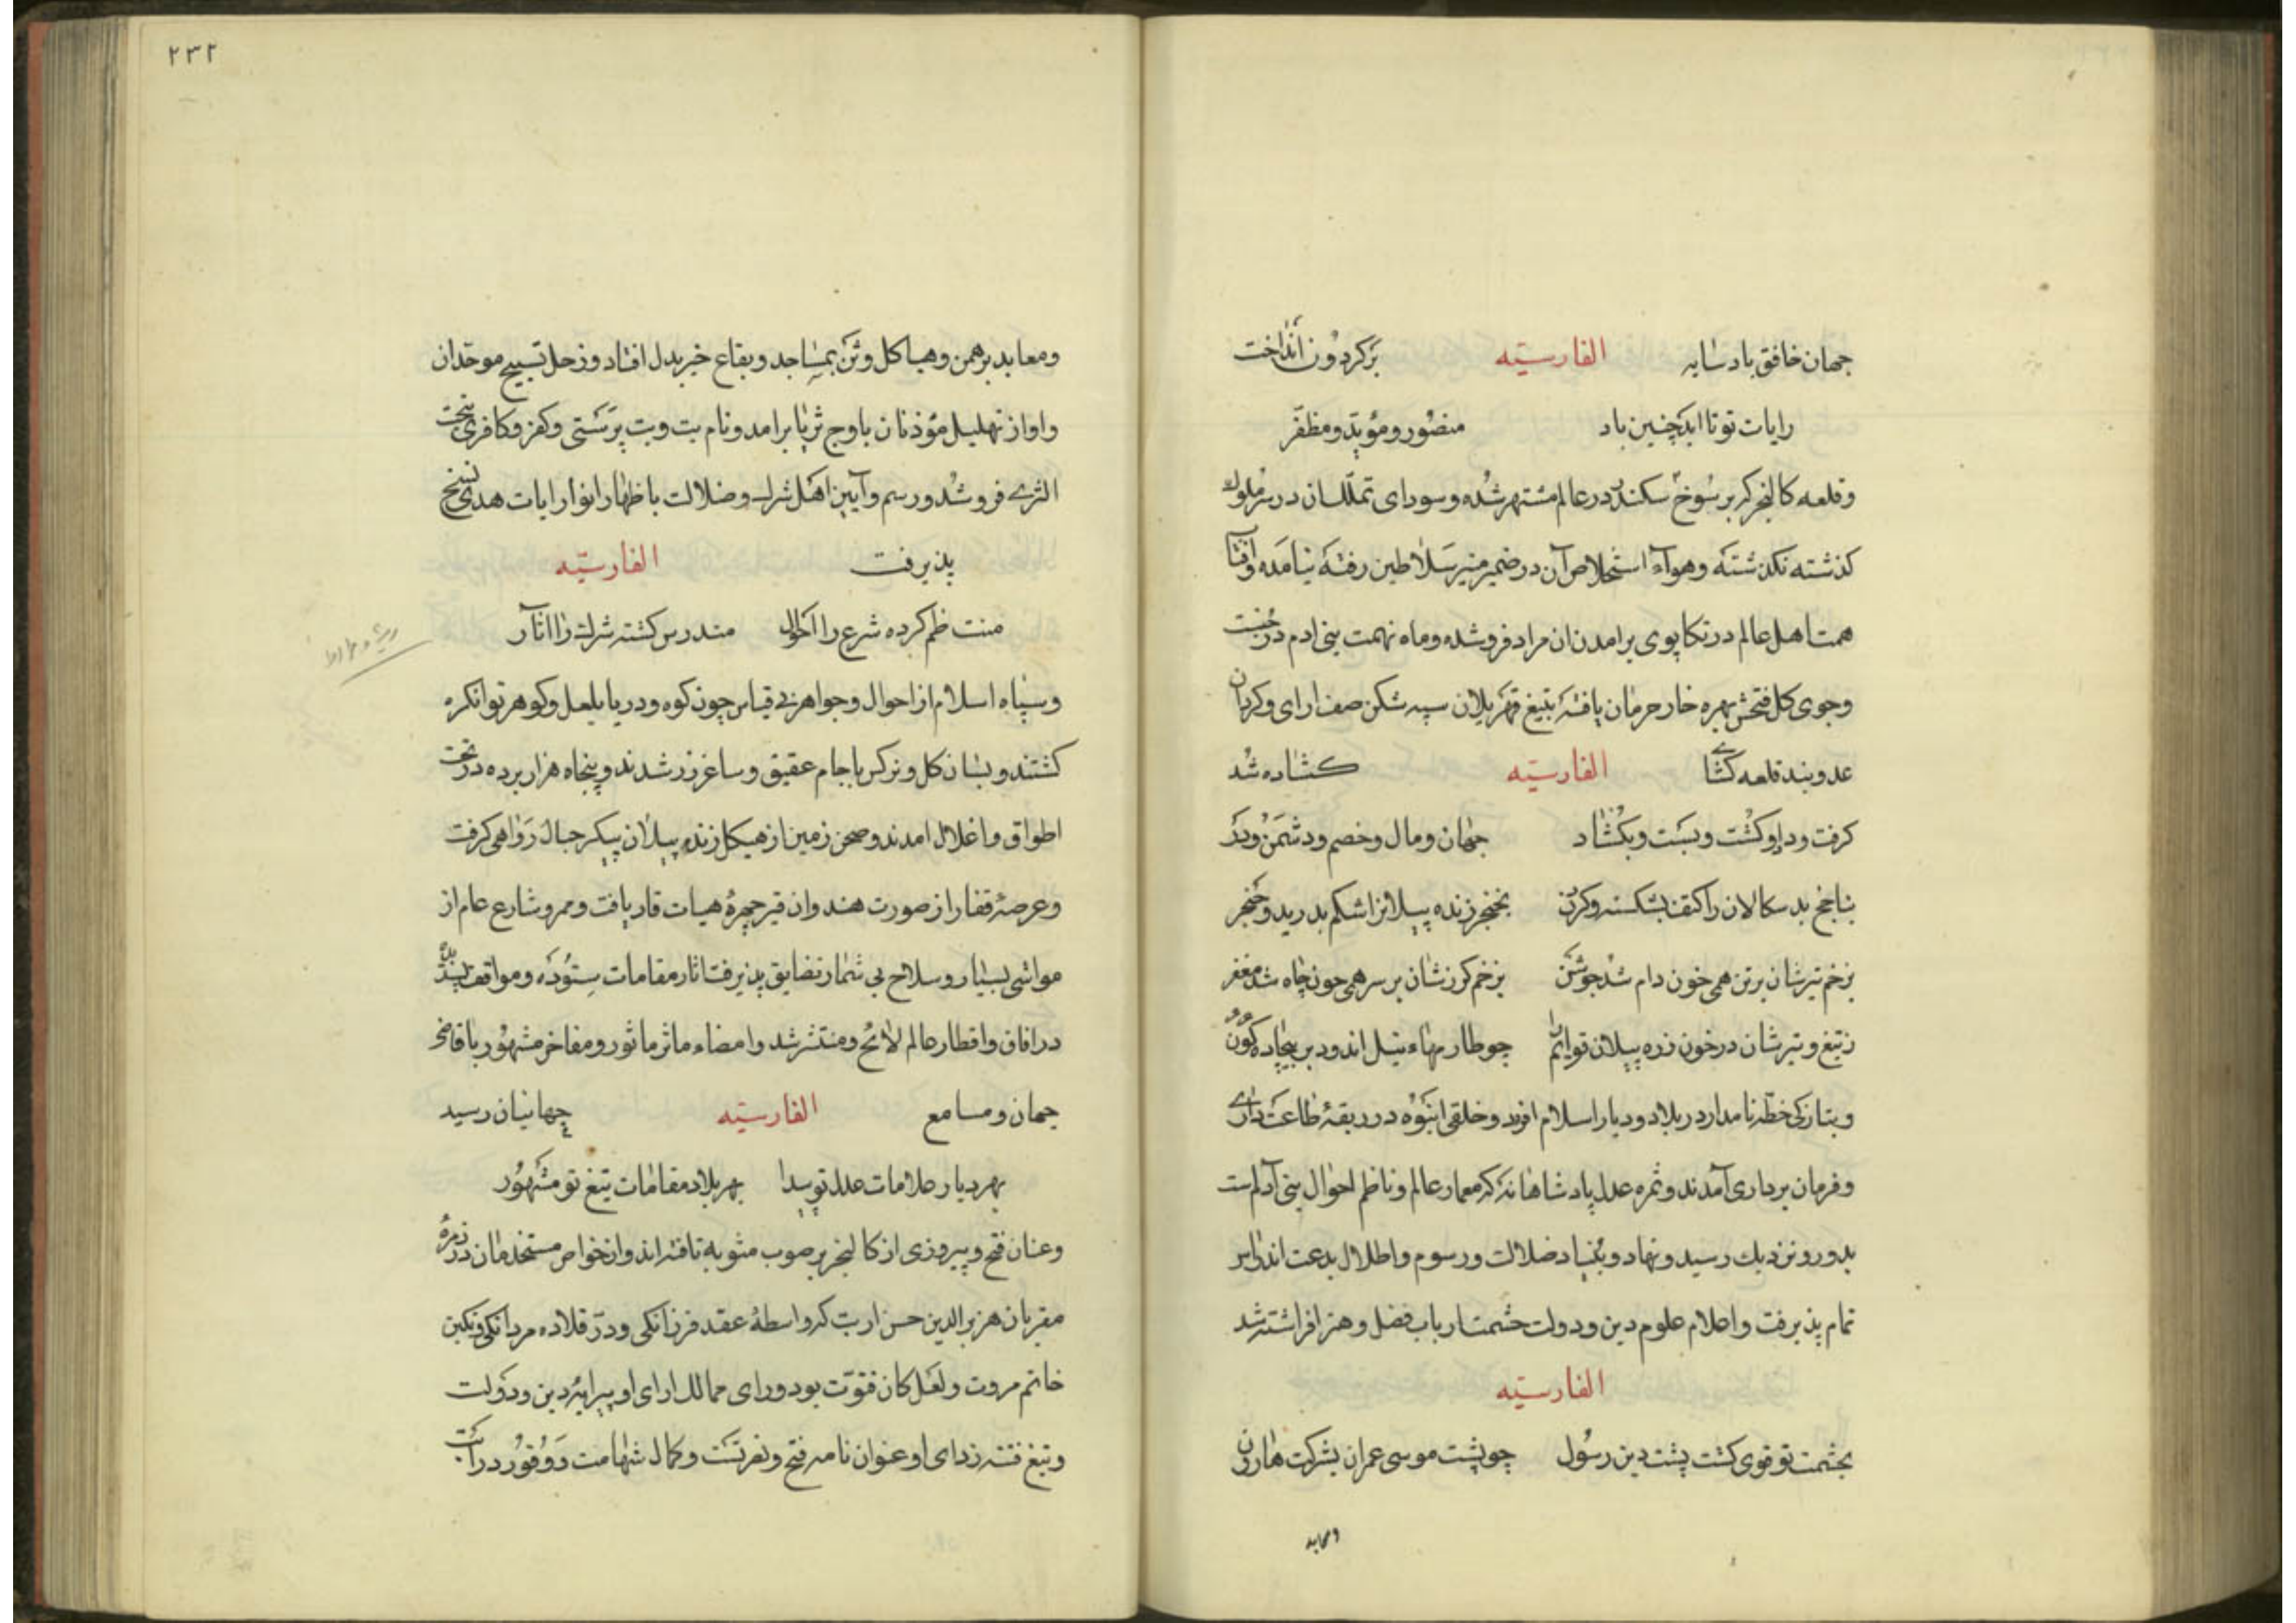 جهان خافق باد سایه الفارسیّه برکردون انداخت
رایات تو تا ابد چنین باد منصور و مؤید و مظفّر
وقلعه کالنجر که برسوخ سکندر در عالم مشتهر شده وسودای تملّک ان در سر ملوک
کذشته نکذشته وهواء استخلاص آن در ضمیر منیر سلاطین رفته نیامده وافتاب
همت اهل عالم در تکاپوی برامدن ان مراد فروشده وماه نهمت بنی ادم در جست
وجوی کل فتحش بهره خار حرمان یافته بتیغ قهر یلان سپه شکن صف ارای وکردان
عدو بند قلعه کشای الفارسیّه کشاده شد
کرفت وداد وکشت وبست وبکشاد جهان ومال وخصم ودشمن ودر
بناجخ بد سکالان را کتف بشکسته وکردن بخنجر زنده پیلانرا شکم بدرید وخنجر
بزخم تیرشان برتن همی خون دام شد جوشن بزخم کرزشان بر سر همی چون چاه شد مغفر
زتیغ وتیرشان در خون زره پیلان تو چو طارمهاء نیل اندود بر بیجاده کون
وبتازکی خطّه نامدار در بلاد ودیار اسلام افزود وخلقی انبوه در ربقهٔ طاعت داری
وفرمان برداری آمدند وثمره عدل پادشاهانه که معمار عالم وناظم احوال بنی آدم است
بدور ونزدیک رسید ونهاد وبنیاد ضلالت ورسوم واطلال بدعت اندراس
تمام پذیرفت واعلام علوم دین ودولت حشمت ارباب فضل وهنر افراشته شد
الفارسیّه
بحشمت تو قوی کشت پشت دین رسول چو پشت موسی عمران بشرکت هارون
ومعابد
۲۳۲
ومعابد برهمن وهیاکل وثن بمساجد وبقاع خیر بدل افتاد وزحل تسبیح موحّدان
واواز تهلیل مؤذنان باوج ثریا برامد ونام بت وبت پرستی وکفر وکافری تحت
الثری فروشد ورسم وآیین اهل شرک وضلالت باظهار انوار رایات هدی نسخ
پذیرفت الفارسیّه
منتظم کرده شرع را احوال مندرس کشته شرک را اثار
وسپاه اسلام از احوال وجواهر بی قیاس چون کوه ودریا بلعل وکوهر توانکره
کشتند وبسان کل ونرکس باجام عقیق وساغر زر شدند وپنجاه هزار برده در تحت
اطواق واغلال امدند وصحن زمین از هیکل زنده پیلان پیکر جبال رواهی کرفت
وعرصهٔ قفار از صورت هندوان قیرچهرهٔ هیات قار یافت وممر وشارع عام از
مواشی بسیار وسلاح بی شمار تضایق پذیرفت اثار مقامات ستوده ومواقف پسندیده
در افاق واقطار عالم لائح ومنتشر شد وامضاء ماثر ماثور ومفاخر مشهور باقاصی
جهان ومسامع الفارسیّه جهانیان رسید
بهر دیار علامات عدل تو پیدا بهر بلاد مقامات تیغ تو مشهور
وعنان فتح وپیروزی از کالنجر بر صوب مثوبه تافته اند واز خواص مستخدمان در زمرهٔ
مقربان هزبر الدین حسن ارنب که واسطهٔ عقد فرزانکی ودرّ قلاده مردانکی ونکین
خاتم مروت ولعل کان فتوّت بود ورای ممالک ارای او پیرایهٔ دین ودولت
وتیغ فتنه زدای او عنوان نامه فتح ونصرتست وکمال شهامت ووفور درایت